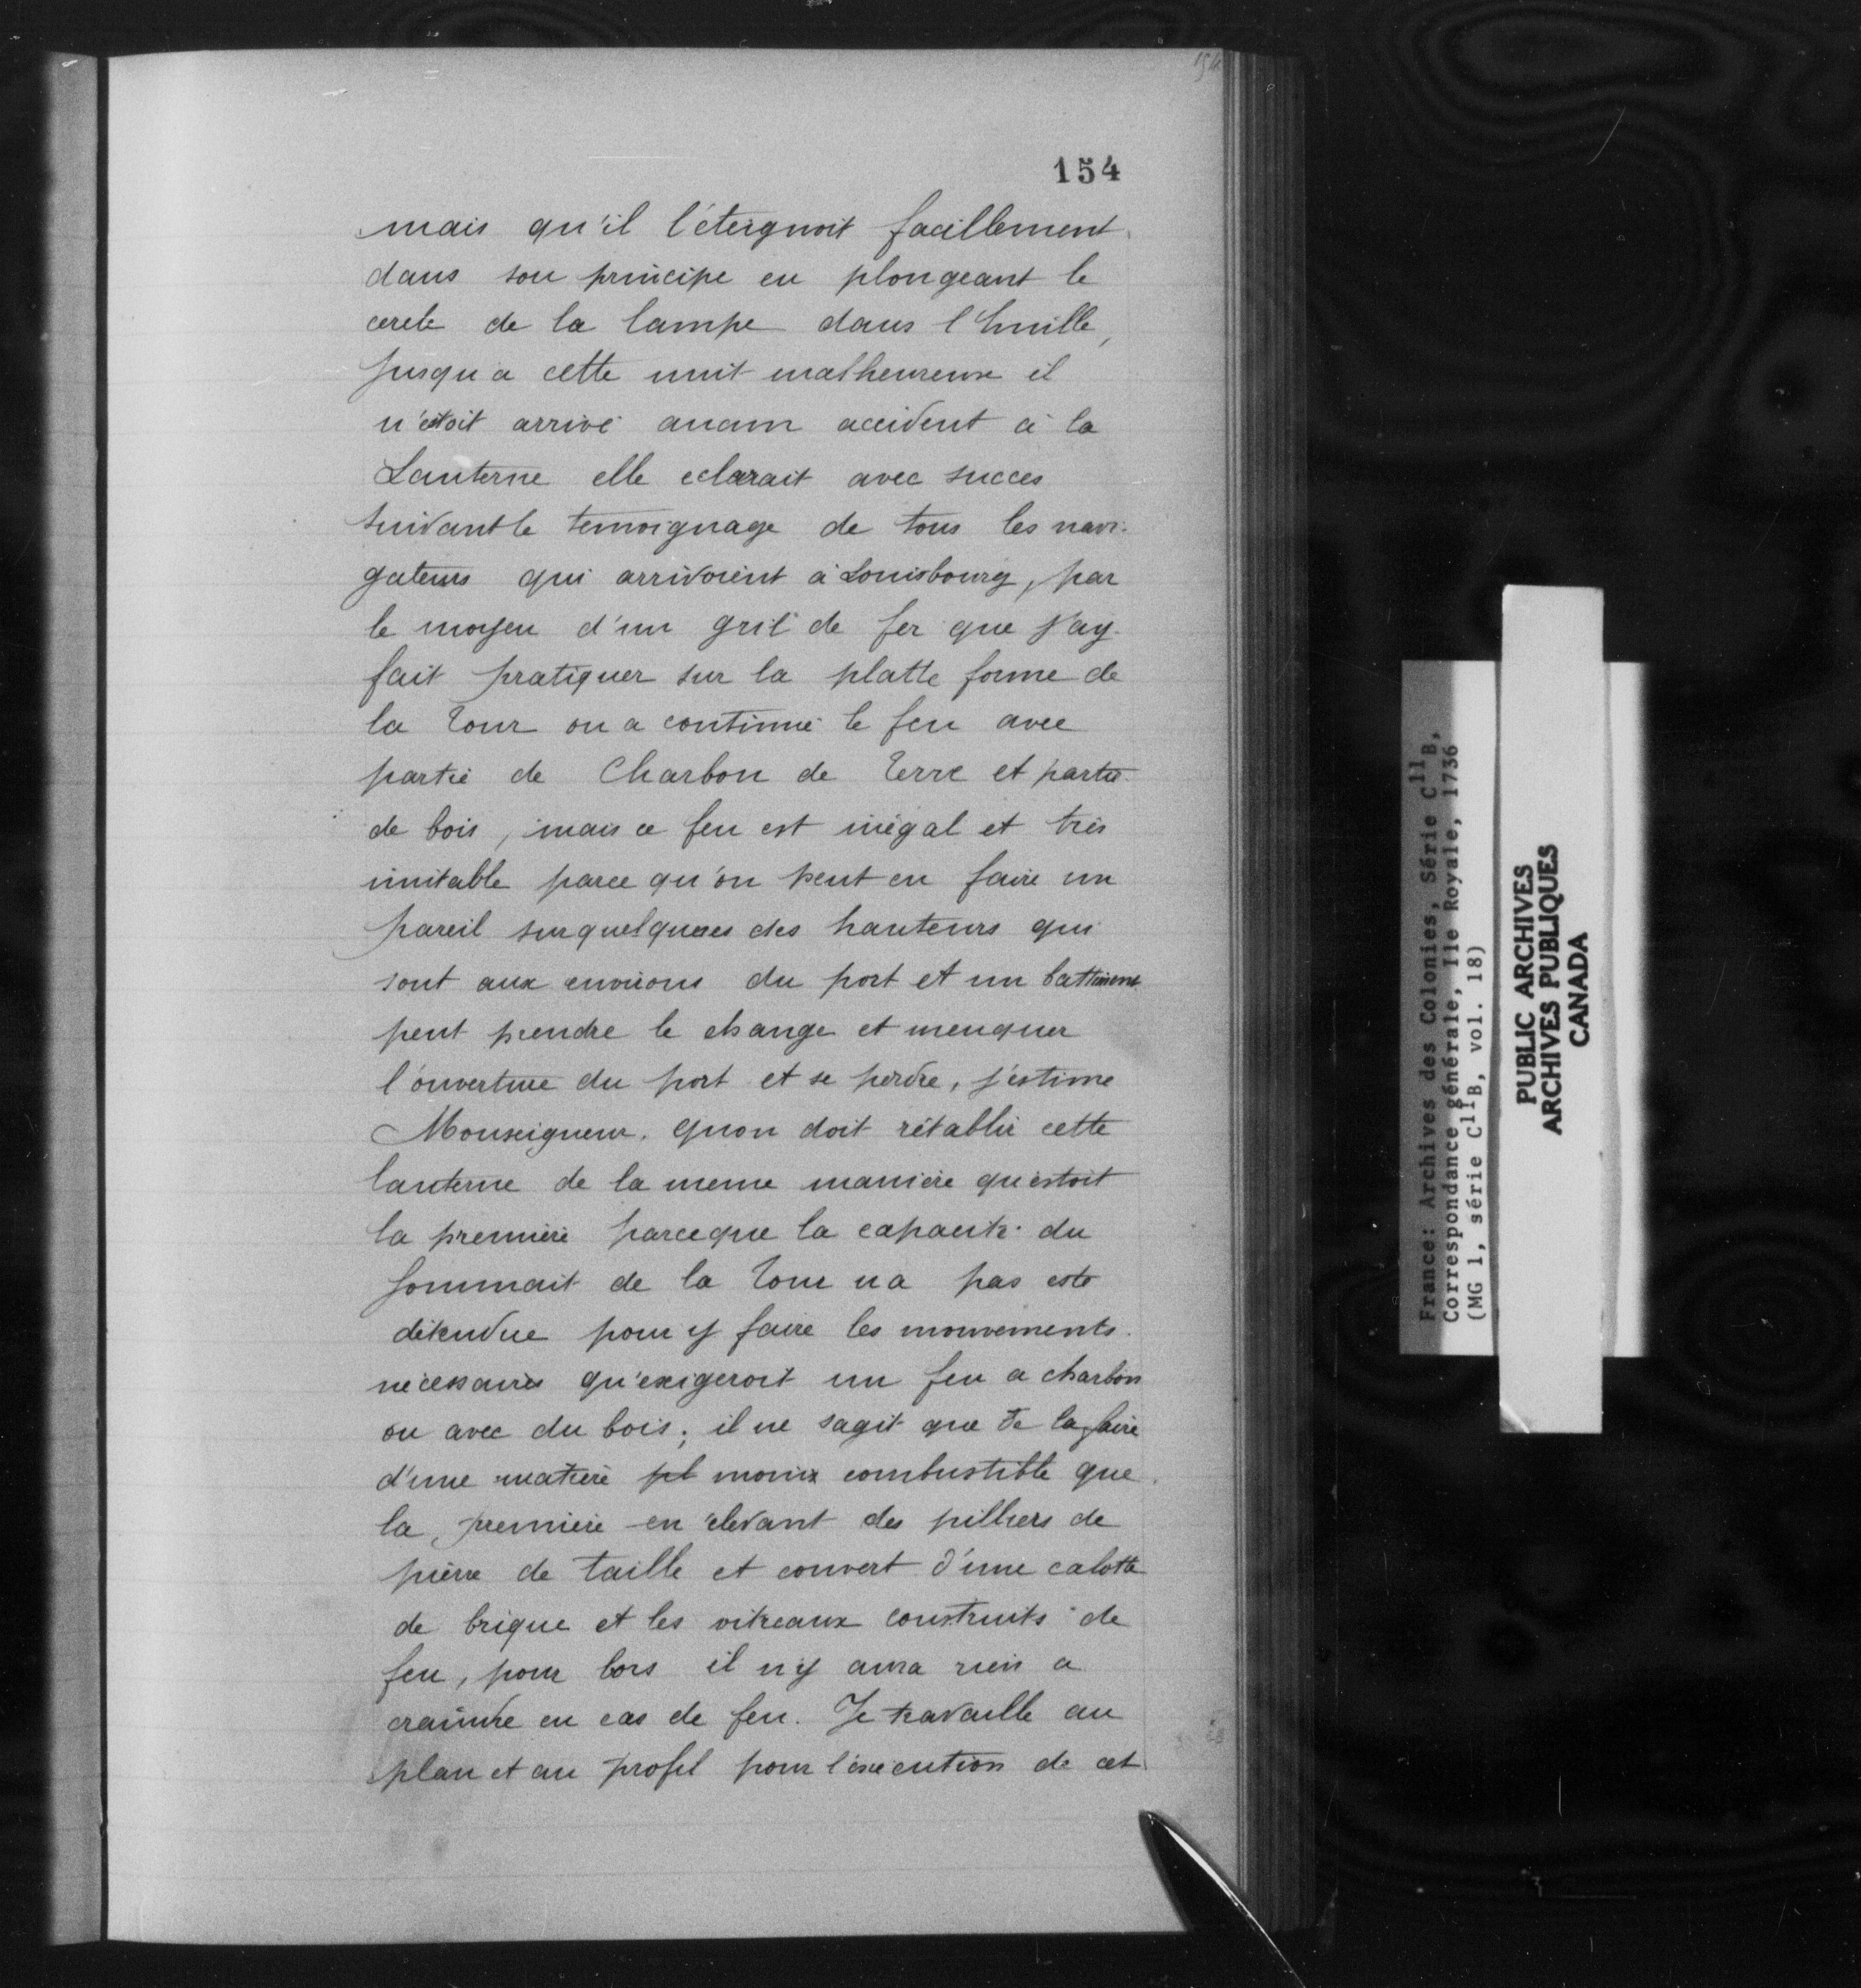 154
mais qu'il l'éteignoit facillement
dans son principe en plongeant le
cercle de la lampe dans l'huille,
jusqu'a cette nuit malheureuse il
n'étoit arrivé aucun accident à la
Lanterne elle eclairait avec succes
suivant le temoignage de tous les navi-
gateurs qui arrivoient à Louisbourg, par
le moyen d'un gril de fer que j'ay
fait pratiquer sur la platte forme de
la tour on a continué le feu avec
partie de Charbon de terre et partie
de bois, mais ce feu est inégal et très
imitable parce qu'on peut en faire un
pareil sur quelques des hauteurs qui
sont aux environs du port et un battiment
peut prendre le change et menquer
l'ouverture du port et se perdre, j'estime
Monseigneur. quon doit rétablir cette
lanterne de la meme manière qu'estoit
la première parceque la capacité du
sommait de la tour na pas esté
détendue pour y faire les mouvements
necessaires qu'exigeroit un feu a charbon
ou avec du bois; il ne sagit que de la faire
d'une matière pl moins combustible que
la première en élevant des pilliers de
pierre de taille et couvert d'une calotte
de brique et les vitreaux construits de
feu, pour lors il n'y aura rien a
craindre en cas de feu. Je travaille au
plan et au profil pour l'execution de cet
France: Archives des Colonies, Série C11B,
Correspondance générale, Ile Royale, 1736
(MG 1, série C11B, vol. 18)
PUBLIC ARCHIVES
ARCHIVES PUBLIQUES
CANADA